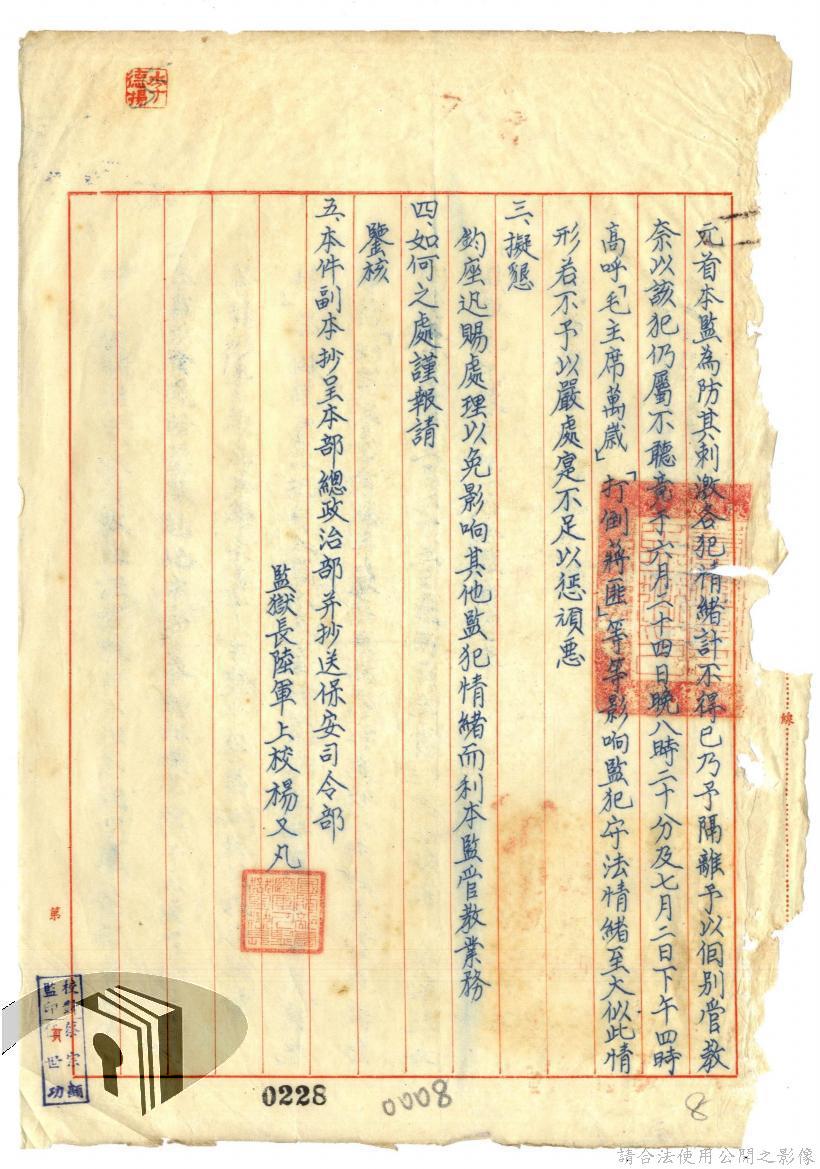 元首本監為防其刺激各犯情緒計不得已乃予隔離予以個別管教
奈以該犯仍屬不聽竟于六月二十四日晚八時二十分及七月二日下午四時
高呼「毛主席萬歲」「打倒蔣匪」等等影响監犯守法情緒至大似此情
形若不予以嚴處寔不足以惩頑悪
三、擬懇
鈞座迅賜處理以免影响其他監犯情緒而利本監管教業務
四、如何之處謹報請
鑒核
五、本件副本抄呈本部總政治部并抄送保安司令部
監獄長陸軍上校楊又凡
李德揚
線
第
校對蔡宗顯
監印世功
0228
0008
8
請合法使用公開之影像